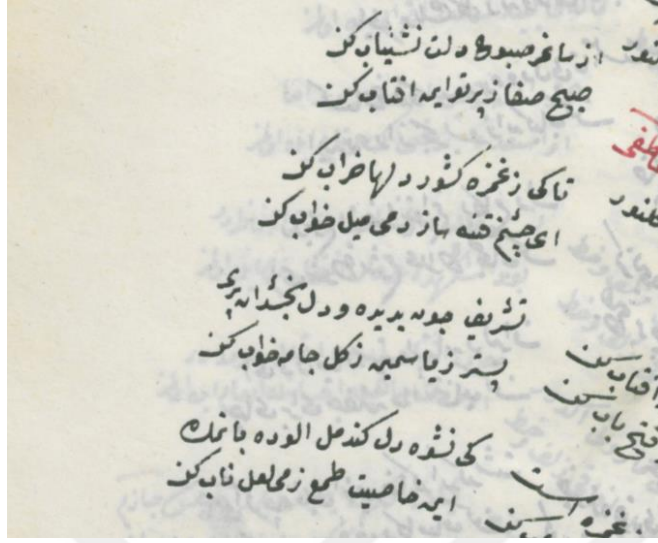 از ساغر صبوح دلت نشئیاب کن
صبح صفا ز پرتو این افتاب کن
تاکی ز غمزه کشور دلها خراب کن
ای چشم فتنه ساز دمی میل خواب کن
تشریف چون بدیده و دل
بستر ز یاسمین ز کل جامه خواب کن
کی نشوه دل کند مل الوده با نمک
این خاصیت طمع ز می لعل ناب کن
افتاب کن
فتح باب کن
غمزه است